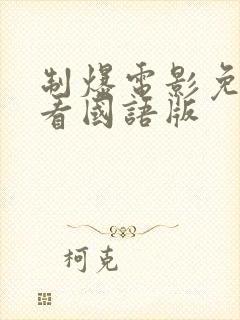 制爆電影免
看國語版
柯克